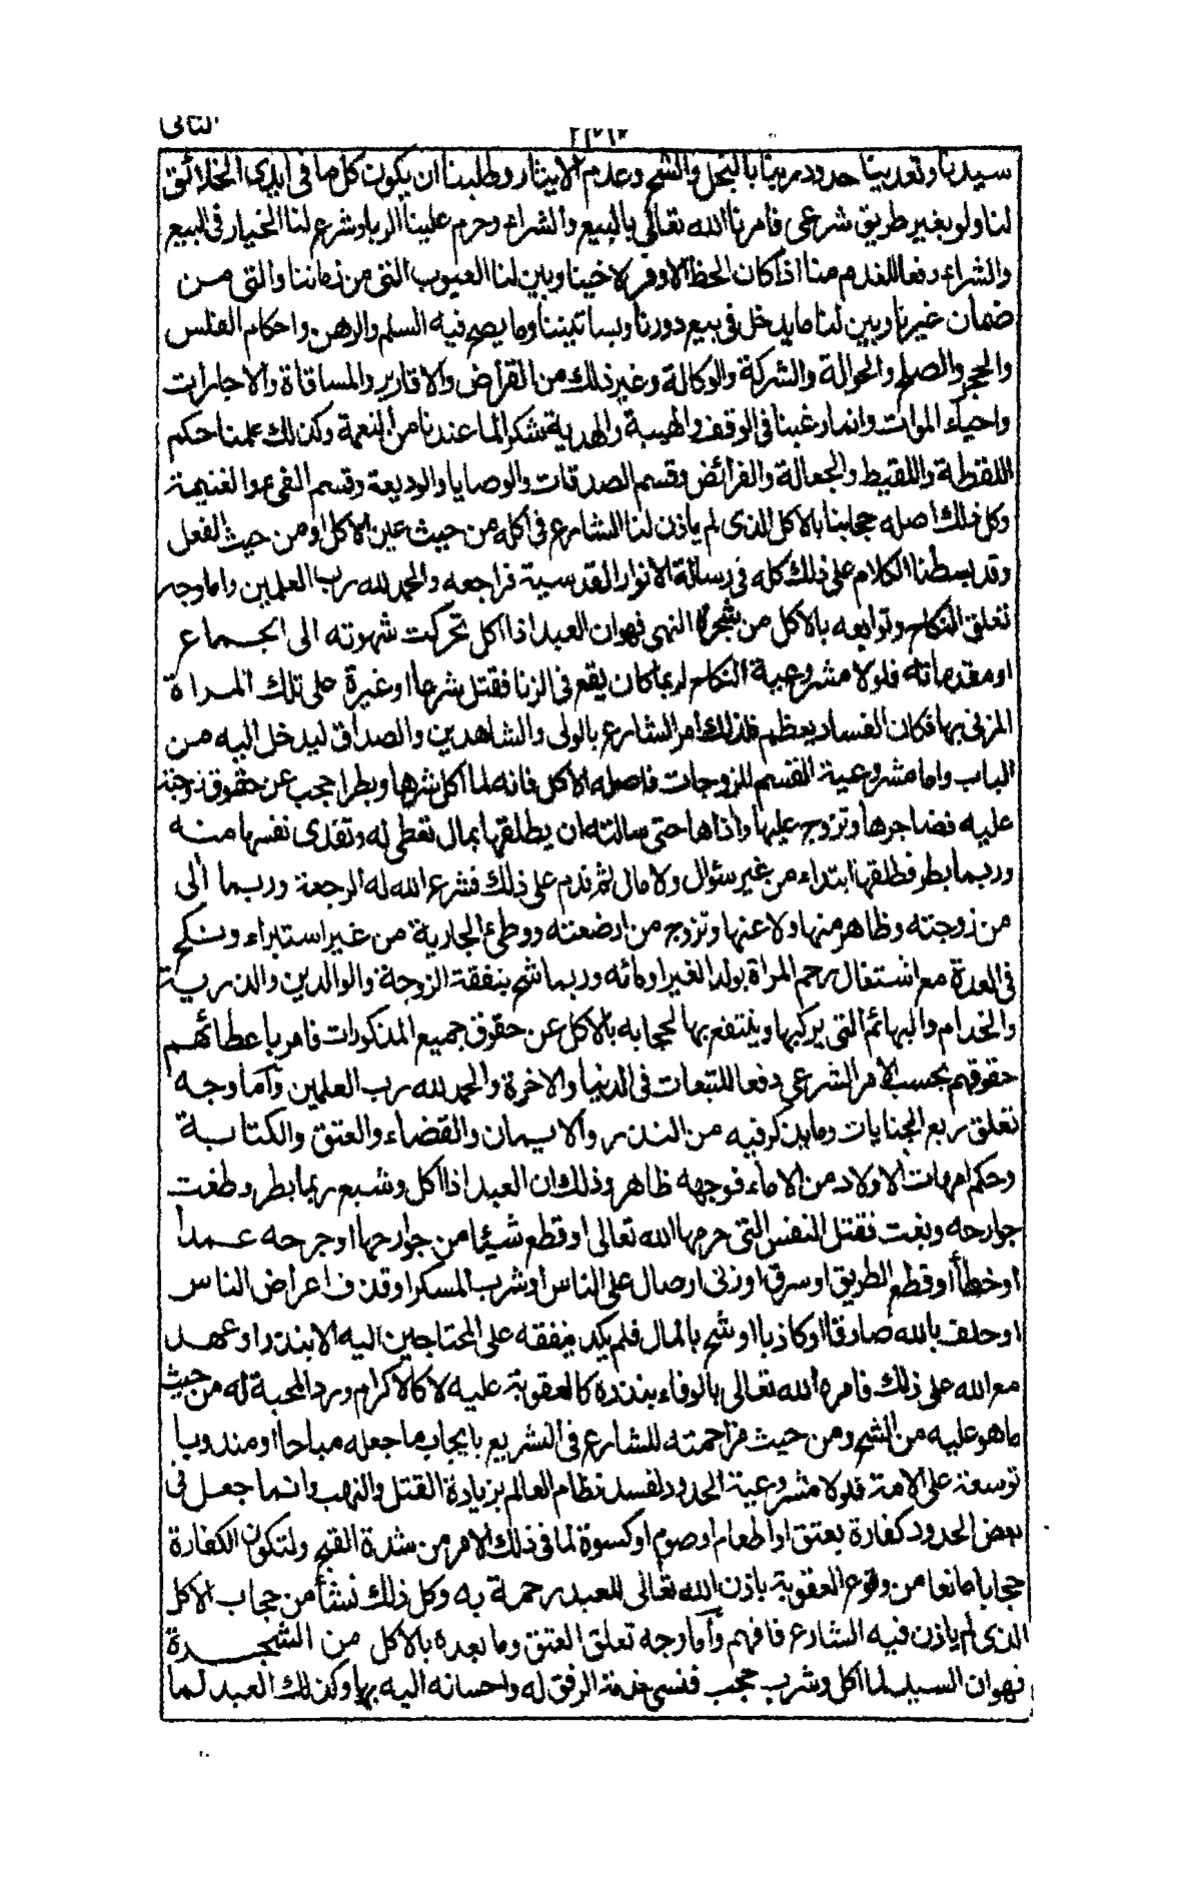 الثانى
سيدنا وتعدينا حدود ربنا بالبخل والشح وعدم الايثار وطلبنا ان يكون كل ما فى ايدى الخلائق
لنا ولو بغير طريق شرعى فامرنا الله تعالى بالبيع والشراء وحرم علينا الربا وشرع لنا الخيار فى البيع
والشراء دفعا للندم منا اذا كان الحظ الاوفر لاخينا وبين لنا العيوب التى من ضماننا والتى مـن
ضمان غيرنا وبين لنا ما يدخل فى بيع دورنا وبساتيننا وما يصح فيه السلم والرهن واحكام الفلس
والحجر والصلح والحوالة والشركة والوكالة وغير ذلك من القراض والاقارير والمساقاة والاجارات
واحياء الموات وانما رغبنا فى الوقف والهبة والهدية شكرا لما عندنا من النعمة وكذلك علمنا حكم
اللقطة واللقيط والجعالة والفرائض وقسم الصدقات والوصايا والوديعة وقسم الفئ والغنيمة
وكل ذلك اصله حجابنا بالاكل الذى لم ياذن لنا الشارع فى اكله من حيث عين الاكل او من حيث الفعل
وقد بسطنا الكلام على ذلك كله فى رسالة الانوار القدسية فراجعه والحمد لله رب العلمين واما وجه
تعلق النكاح وتوابعه بالاكل من شجرة النهى فهو ان العبد اذا اكل تحركت شهوته الى الجمـاع
او مقدماته فلولا مشروعية النكاح لربما كان يقع فى الزنا فقتل شرعا او غيرة على تلك المـراة
المزنى بها فكان الفساد يعظم فلذلك امر الشارع بالولى والشاهدين والصداق ليدخل اليه مـن
الباب واما مشروعية القسم للزوجات فاصله الاكل فانه لما اكل شرها وبطرا حجب عن حقوق زوجته
عليه فضاجرها وتزوج عليها واذاها حتى سالته ان يطلقها بمال تعطى له وتفدى نفسها منـه
وربما بطر فطلقها ابتداء من غير سؤال ولا مال ثم ندم على ذلك فشرع الله له الرجعة وربـما الى
من زوجته وظاهر منها ولاعنها وتزوج من ارضعته ووطئ الجارية من غير استبراء ونـكح
فى العدة مع اشتغال رحم المراة بولد الغير او مائه وربما شح بنفقة الزوجة والوالدين والذرية
والخدام والبهائم التى يركبها وينتفع بها لحجابه بالاكل عن حقوق جميع المذكورات فامر باعطائهم
حقوقهم بحسب الامر الشرعى دفعا للتبعات فى الدنيا والاخرة والحمد لله رب العلمين واما وجـه
تعلق ربع الجنايات وما يذكر فيه من النذر والايمان والقضاء والعتق والكتابـة
وحكم امهات الاولاد من الاماء فوجهه ظاهر وذلك ان العبد اذا اكل وشبع ربما بطر وطغت
جوارحه وبغت فقتل النفس التى حرمها الله تعالى او قطع شيئا من جوارحها او جرحه عـمدا
او خطأ او قطع الطريق او سرق او زنى او صال على الناس او شرب المسكر او قذف اعراض الناس
او حلف بالله صادقا او كاذبا او شح بالمال فلم يكد ينفقه على المحتاجين اليه الا بنذر او عهـد
مع الله على ذلك فامره الله تعالى بالوفاء بنذره كالعقوبة عليه لا كالاكرام ورد المحبة له من حيث
ما هو عليه من الشح ومن حيث مزاحمته للشارع فى التشريع بايجاب ما جعله مباحا او مندوبا
توسعة على الامة فلولا مشروعية الحدود لفسد نظام العالم بزيادة القتل والنهب وانـما جعـل فى
بعض الحدود كفارة بعتق او اطعام او صوم او كسوة لما فى ذلك الامر من شدة القبح ولتكون الكفارة
حجابا مانعا من وقوع العقوبة باذن الله تعالى للعبد رحمة به وكل ذلك نشأ من حجاب الاكل
الذى لم ياذن فيه الشارع فافهم وأما وجه تعلق العتق وما بعده بالاكل من الشجـرة
فهو ان السيد لما اكل وشرب حجب فنسى خدمة الرقيق له واحسانه اليه بها وكذلك العبد لـما